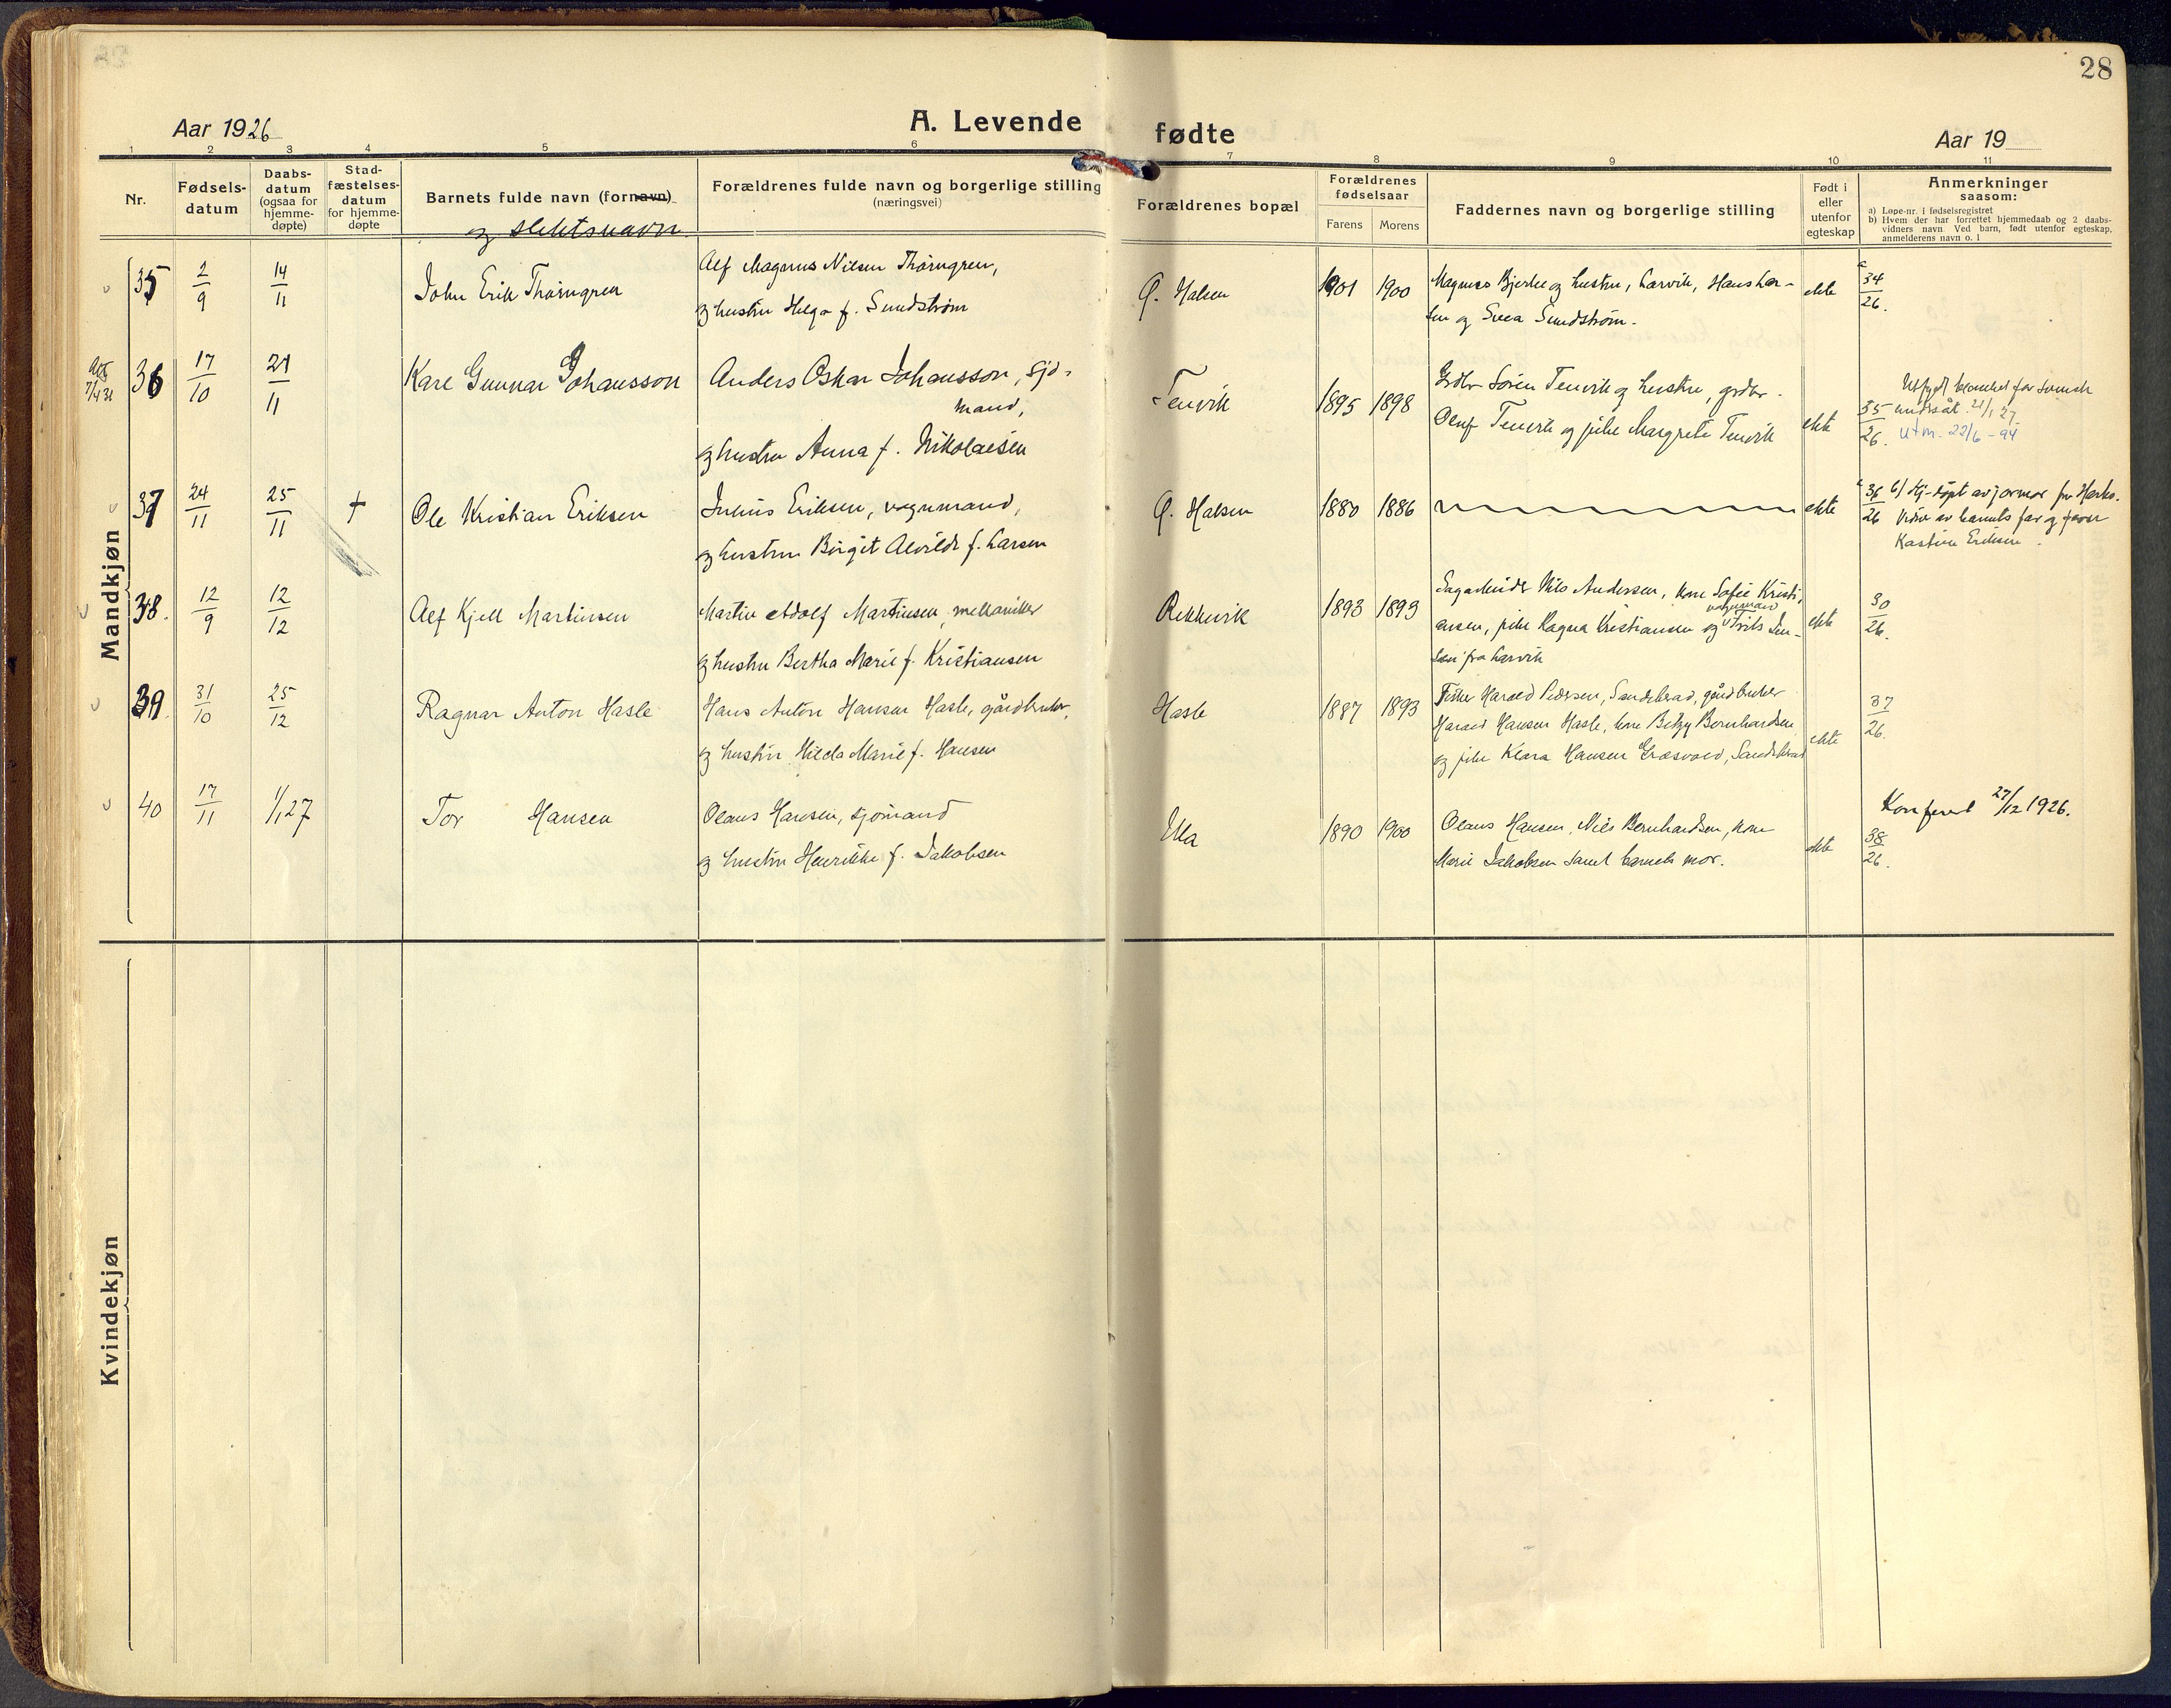 28
Aar 1926
A. Levende
fødte
Aar 19
1 2 3 4 5 6 7 8 9 10 11
Nr.
Fødsels-
datum
Daabs-
datum
(ogsaa for
hjemme-
døpte)
Stad-
fæstelses-
datum
for hjemme-
døpte
Barnets fulde navn (fornavn)
og slektsnavn
Forældrenes fulde navn og borgerlige stilling
(næringsvei)
Forældrenes bopæl
Forældrenes
fødselsaar
Farens
Morens
Faddernes navn og borgerlige stilling
Født i
eller
utenfor
egteskap
Anmerkninger
saasom:
a) Løpe-nr. i fødselsregistret
b) Hvem der har forrettet hjemmedaab og 2 daabs-
vidners navn Ved barn, født utenfor egteskap,
anmelderens navn o. l
Mandkjøn
35 2/9 14/11 John Erik Thørngren
Alf Magnus Nilsen Thørngren,
og hustru Helga f. Sundstrøm
Ø. Halsen 1901 1900
Magnus Bjerke og hustru, Larvik, Hans Lar-
sen og Svea Sundstrøm.
ekte
34/26.
7/4 31
36 17/10 21/11 Kare Gunnar Johansson
Anders Oskar Johansson, sjø-
mand,
og hustru Anna f. Nikolaisen
Tenvik 1895 1898
Grdbr Søren Tenvik og hustru, grdbr.
Oluf Tenvik og pike Margrete Tenvik
ekte
35/26.
for svensk
undersåt. 21/1 27
Utm. 22/6 - 94
37 24/11 25/11 † Ole Kristian Eriksen
Julius Eriksen, vognmand,
og hustru Birgit Alvilde f. Larsen
Ø. Halsen 1880 1886
ekte
36/26 b) Hj-døpt av jormor fru
Vidner av barnets far og
Kastine Eriksen.
38. 12/9 12/12 Alf Kjell Martinsen
Martin Adolf Martinsen, mekaniker
og hustru Bertha Marie f. Kristiansen
Rekkevik 1893 1893
Sagarbeider Nils Andersen, kone Sofie Kristi-
ansen, pike Ragna Kristiansen og vognmand Frits Jen-
sen fra Larvik
ekte
30/26.
39. 31/10 25/12 Ragnar Anton Hasle
Hans Anton Hansen Hasle, gårdbruker,
og hustru Hilda Marie f. Hansen
Hasle 1887 1893
Fisker Harald Pedersen, Sandebrad, gårdbruker
Harald Hansen Hasle, kone Betzy Bernhardsen
og pike Klara Hansen Græsvold, Sandebrad
ekte
37/26.
40 17/11 1/1 27 Tor Hansen
Olaus Hansen, sjømand
og hustru Henrikke f. Jakobsen
Ula 1890 1900
Olaus Hansen, Nils Bernhardsen, kone
Marie Jakobsen samt barnets mor.
ekte
38/26.
Konferert 27/12 1926.
Kvindekjøn